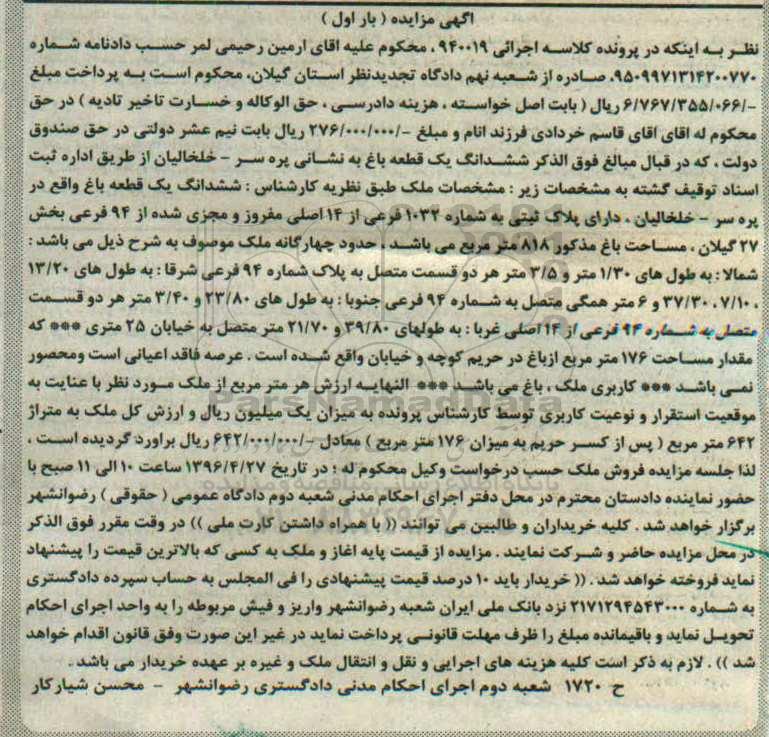 آگهی مزایده ( بار اول )
نظر به اینکه در پرونده کلاسه اجرائی ۹۴۰۰۱۹ ، محکوم علیه اقای ارمین رحیمی لمر حسب دادنامه شماره
۹۵۰۹۹۷۱۳۱۴۲۰۰۷۷۰، صادره از شعبه نهم دادگاه تجدیدنظر استان گیلان، محکوم است به پرداخت مبلغ
-/۶/۷۶۷/۳۵۵/۰۶۶ ریال ( بابت اصل خواسته ، هزینه دادرسی ، حق الوکاله و خسارت تاخیر تادیه ) در حق
محکوم له اقای اقای قاسم خردادی فرزند انام و مبلغ -/۲۷۶/۰۰۰/۰۰۰ ریال بابت نیم عشر دولتی در حق صندوق
دولت ، که در قبال مبالغ فوق الذکر ششدانگ یک قطعه باغ به نشانی پره سر - خلخالیان از طریق اداره ثبت
اسناد توقیف گشته به مشخصات زیر : مشخصات ملک طبق نظریه کارشناس : ششدانگ یک قطعه باغ واقع در
پره سر - خلخالیان ، دارای پلاک ثبتی به شماره ۱۰۳۲ فرعی از ۱۴ اصلی مفروز و مجزی شده از ۹۴ فرعی بخش
۲۷ گیلان ، مساحت باغ مذکور ۸۱۸ متر مربع می باشد ، حدود چهارگانه ملک موصوف به شرح ذیل می باشد :
شمالا : به طول های ۱/۳۰ متر و ۳/۵ متر هر دو قسمت متصل به پلاک شماره ۹۴ فرعی شرقا : به طول های ۱۳/۲۰
، ۷/۱۰ ، ۳۷/۳۰ و ۶ متر همگی متصل به شماره ۹۴ فرعی جنوبا : به طول های ۲۳/۸۰ و ۳/۴۰ متر هر دو قسمت
متصل به شماره ۹۴ فرعی از ۱۴ اصلی غربا : به طولهای ۳۹/۸۰ و ۲۱/۷۰ متر متصل به خیابان ۲۵ متری *** که
مقدار مساحت ۱۷۶ متر مربع ازباغ در حریم کوچه و خیابان واقع شده است . عرصه فاقد اعیانی است ومحصور
نمی باشد *** کاربری ملک ، باغ می باشد *** النهایه ارزش هر متر مربع از ملک مورد نظر با عنایت به
موقعیت استقرار و نوعیت کاربری توسط کارشناس پرونده به میزان یک میلیون ریال و ارزش کل ملک به متراژ
۶۴۲ متر مربع ( پس از کسر حریم به میزان ۱۷۶ متر مربع ) معادل -/۶۴۲/۰۰۰/۰۰۰ ریال براورد گردیده است ،
لذا جلسه مزایده فروش ملک حسب درخواست وکیل محکوم له ؛ در تاریخ ۱۳۹۶/۴/۲۷ ساعت ۱۰ الی ۱۱ صبح با
حضور نماینده دادستان محترم در محل دفتر اجرای احکام مدنی شعبه دوم دادگاه عمومی ( حقوقی ) رضوانشهر
برگزار خواهد شد . کلیه خریداران و طالبین می توانند (( با همراه داشتن کارت ملی )) در وقت مقرر فوق الذکر
در محل مزایده حاضر و شرکت نمایند . مزایده از قیمت پایه اغاز و ملک به کسی که بالاترین قیمت را پیشنهاد
نماید فروخته خواهد شد . (( خریدار باید ۱۰ درصد قیمت پیشنهادی را فی المجلس به حساب سپرده دادگستری
به شماره ۲۱۷۱۲۹۴۵۴۳۰۰۰ نزد بانک ملی ایران شعبه رضوانشهر واریز و فیش مربوطه را به واحد اجرای احکام
تحویل نماید و باقیمانده مبلغ را ظرف مهلت قانونی پرداخت نماید در غیر این صورت وفق قانون اقدام خواهد
شد )) . لازم به ذکر است کلیه هزینه های اجرایی و نقل و انتقال ملک و غیره بر عهده خریدار می باشد .
ح ۱۷۲۰ شعبه دوم اجرای احکام مدنی دادگستری رضوانشهر - محسن شیارکار
ParsNamadData